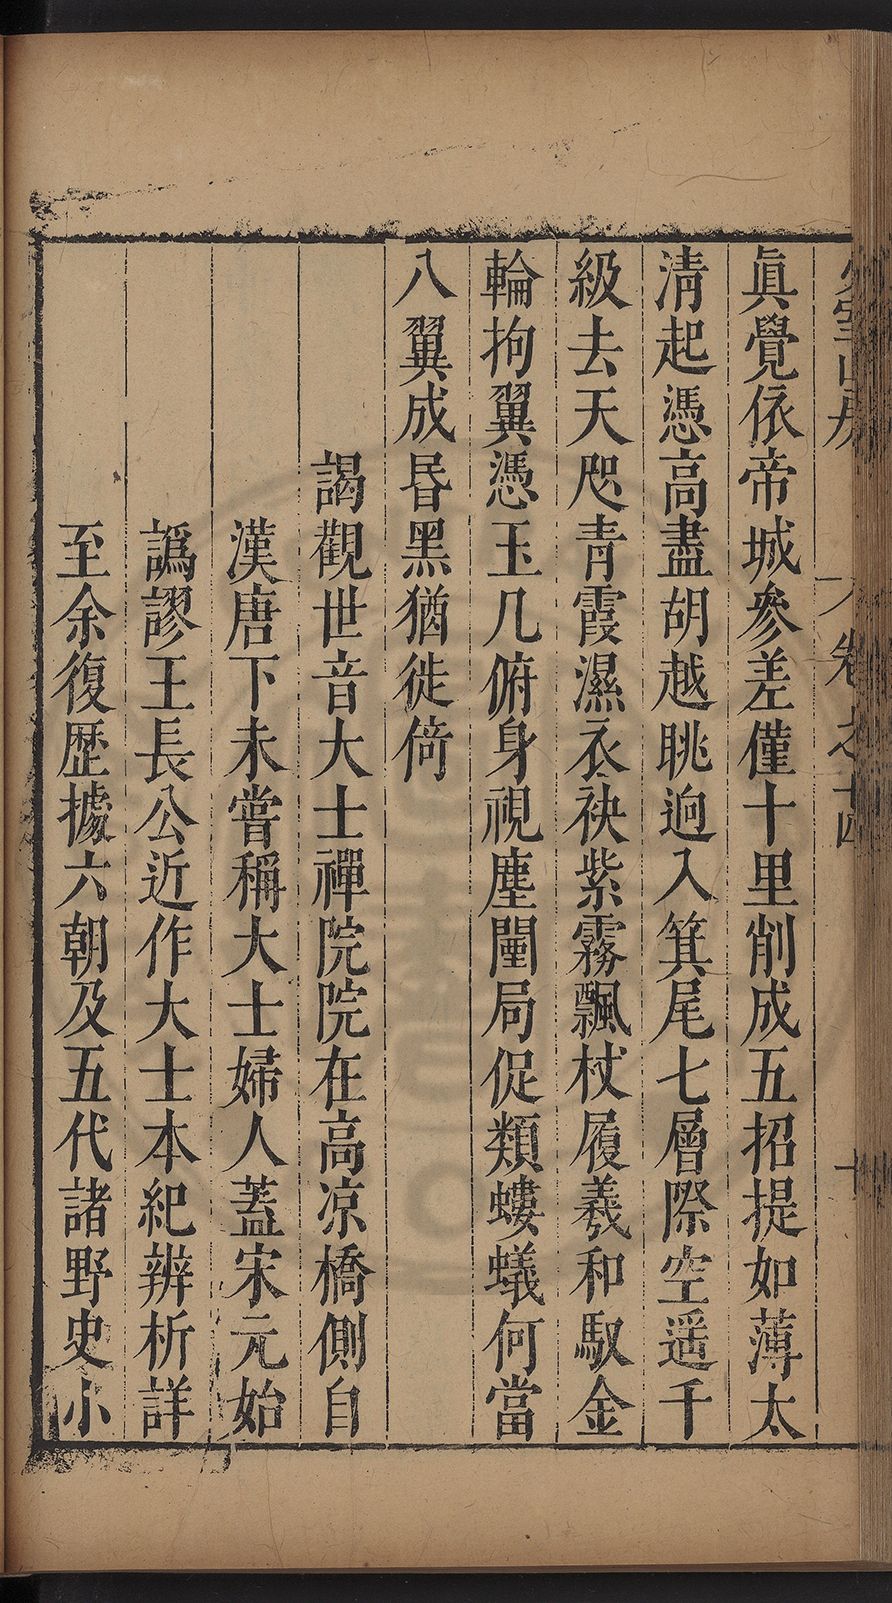 眞覺依帝城參差僅十里削成五招提如薄太
清起憑高盡胡越眺逈入箕尾七層際空遥千
級去天咫青霞濕衣袂紫霧飄杖履羲和馭金
輪拘翼憑玉几俯身視塵闤局促類螻蟻何當
八翼成昬黑猶徙倚
謁觀世音大士禪院院在高凉橋側自
漢唐下未嘗稱大士婦人蓋宋元始
譌謬王長公近作大士本紀辨析詳
至余復歴據六朝及五代諸野史小